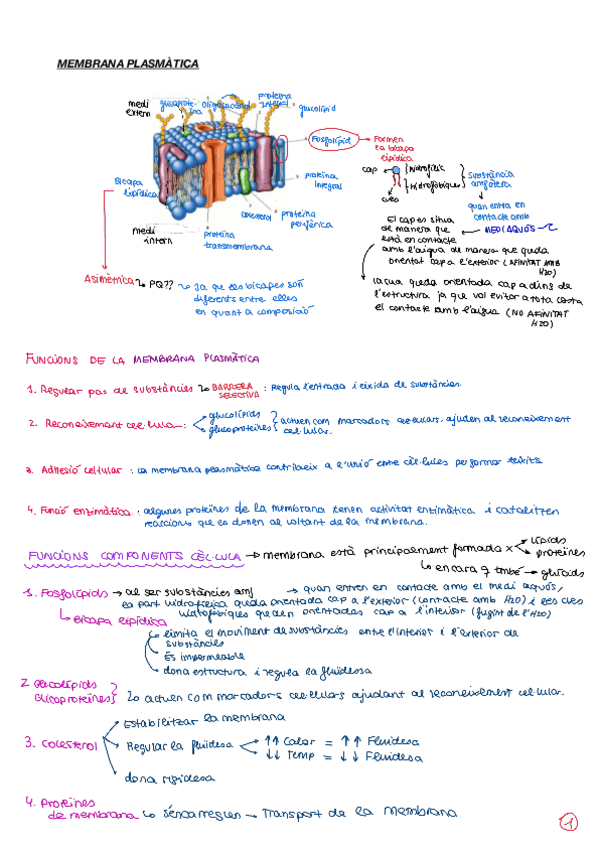 MEMBRANA PLASMÀTICA
medi extern
glucoproteïna
Oligosacàrid
proteïna integral
glucolípid
Fosfolípid
Formen la bicapa lipídica
cap
Hidrofílic
Hidrofòbiques
cues
Substància amfótera
quan entra en contacte amb
MEDI AQUÓS
Bicapa lipídica
proteïna integral
colesterol
proteïna perifèrica
medi intern
proteïna transmembrana
El cap es situa
de manera que
està en contacte
amb l'aigua de manera que queda
orientat cap a l'exterior (AFINITAT AMB
H2O)
la cua queda orientada cap a dins de
l'estructura ja que vol evitar a tota costa
el contacte amb l'aigua (NO AFINITAT
H2O)
Asimètrica
PQ??
Ja que les bicapes són
diferents entre elles
en quant a composició
FUNCIONS DE LA MEMBRANA PLASMÀTICA
1. Regular pas de substàncies BARRERA SELECTIVA : Regula l'entrada i eixida de substàncies.
2. Reconeixement cel·lular: glucolípids
glucoproteïnes
actuen com marcadors cel·lulars, ajuden al reconeixement
cel·lular.
3. Adhesió cel·lular : la membrana plasmàtica contribueix a l'unió entre cèl·lules per formar teixits
4. Funció enzimàtica : algunes proteïnes de la membrana tenen activitat enzimàtica i catalitzen
reaccions que es donen al voltant de la membrana.
FUNCIONS COMPONENTS CÈL·LULA → membrana està principalment formada x lípids
proteïnes
encara q també → glúcids
1. Fosfolípids → al ser substàncies amf → quan entren en contacte amb el medi aquós,
la part hidrofílica queda orientada cap a l'exterior (contacte amb H2O) i les cues
hidrofòbiques queden orientades cap a l'interior (fugint de l'H2O)
Bicapa lipídica
limita el moviment de substàncies entre l'interior i l'exterior de
substàncies
És impermeable
dona estructura i regula la fluïdesa
2 Glucolípids
Glucoproteïnes
actuen com marcadors cel·lulars ajudant al reconeixement cel·lular.
3. Colesterol
Estabilitzar la membrana
Regular la fluïdesa
↑↑ Calor = ↑↑ Fluïdesa
↓↓ Temp = ↓↓ Fluïdesa
dona rigidesa
4. Proteïnes
de membrana
s'encarreguen → Transport de la membrana.
1